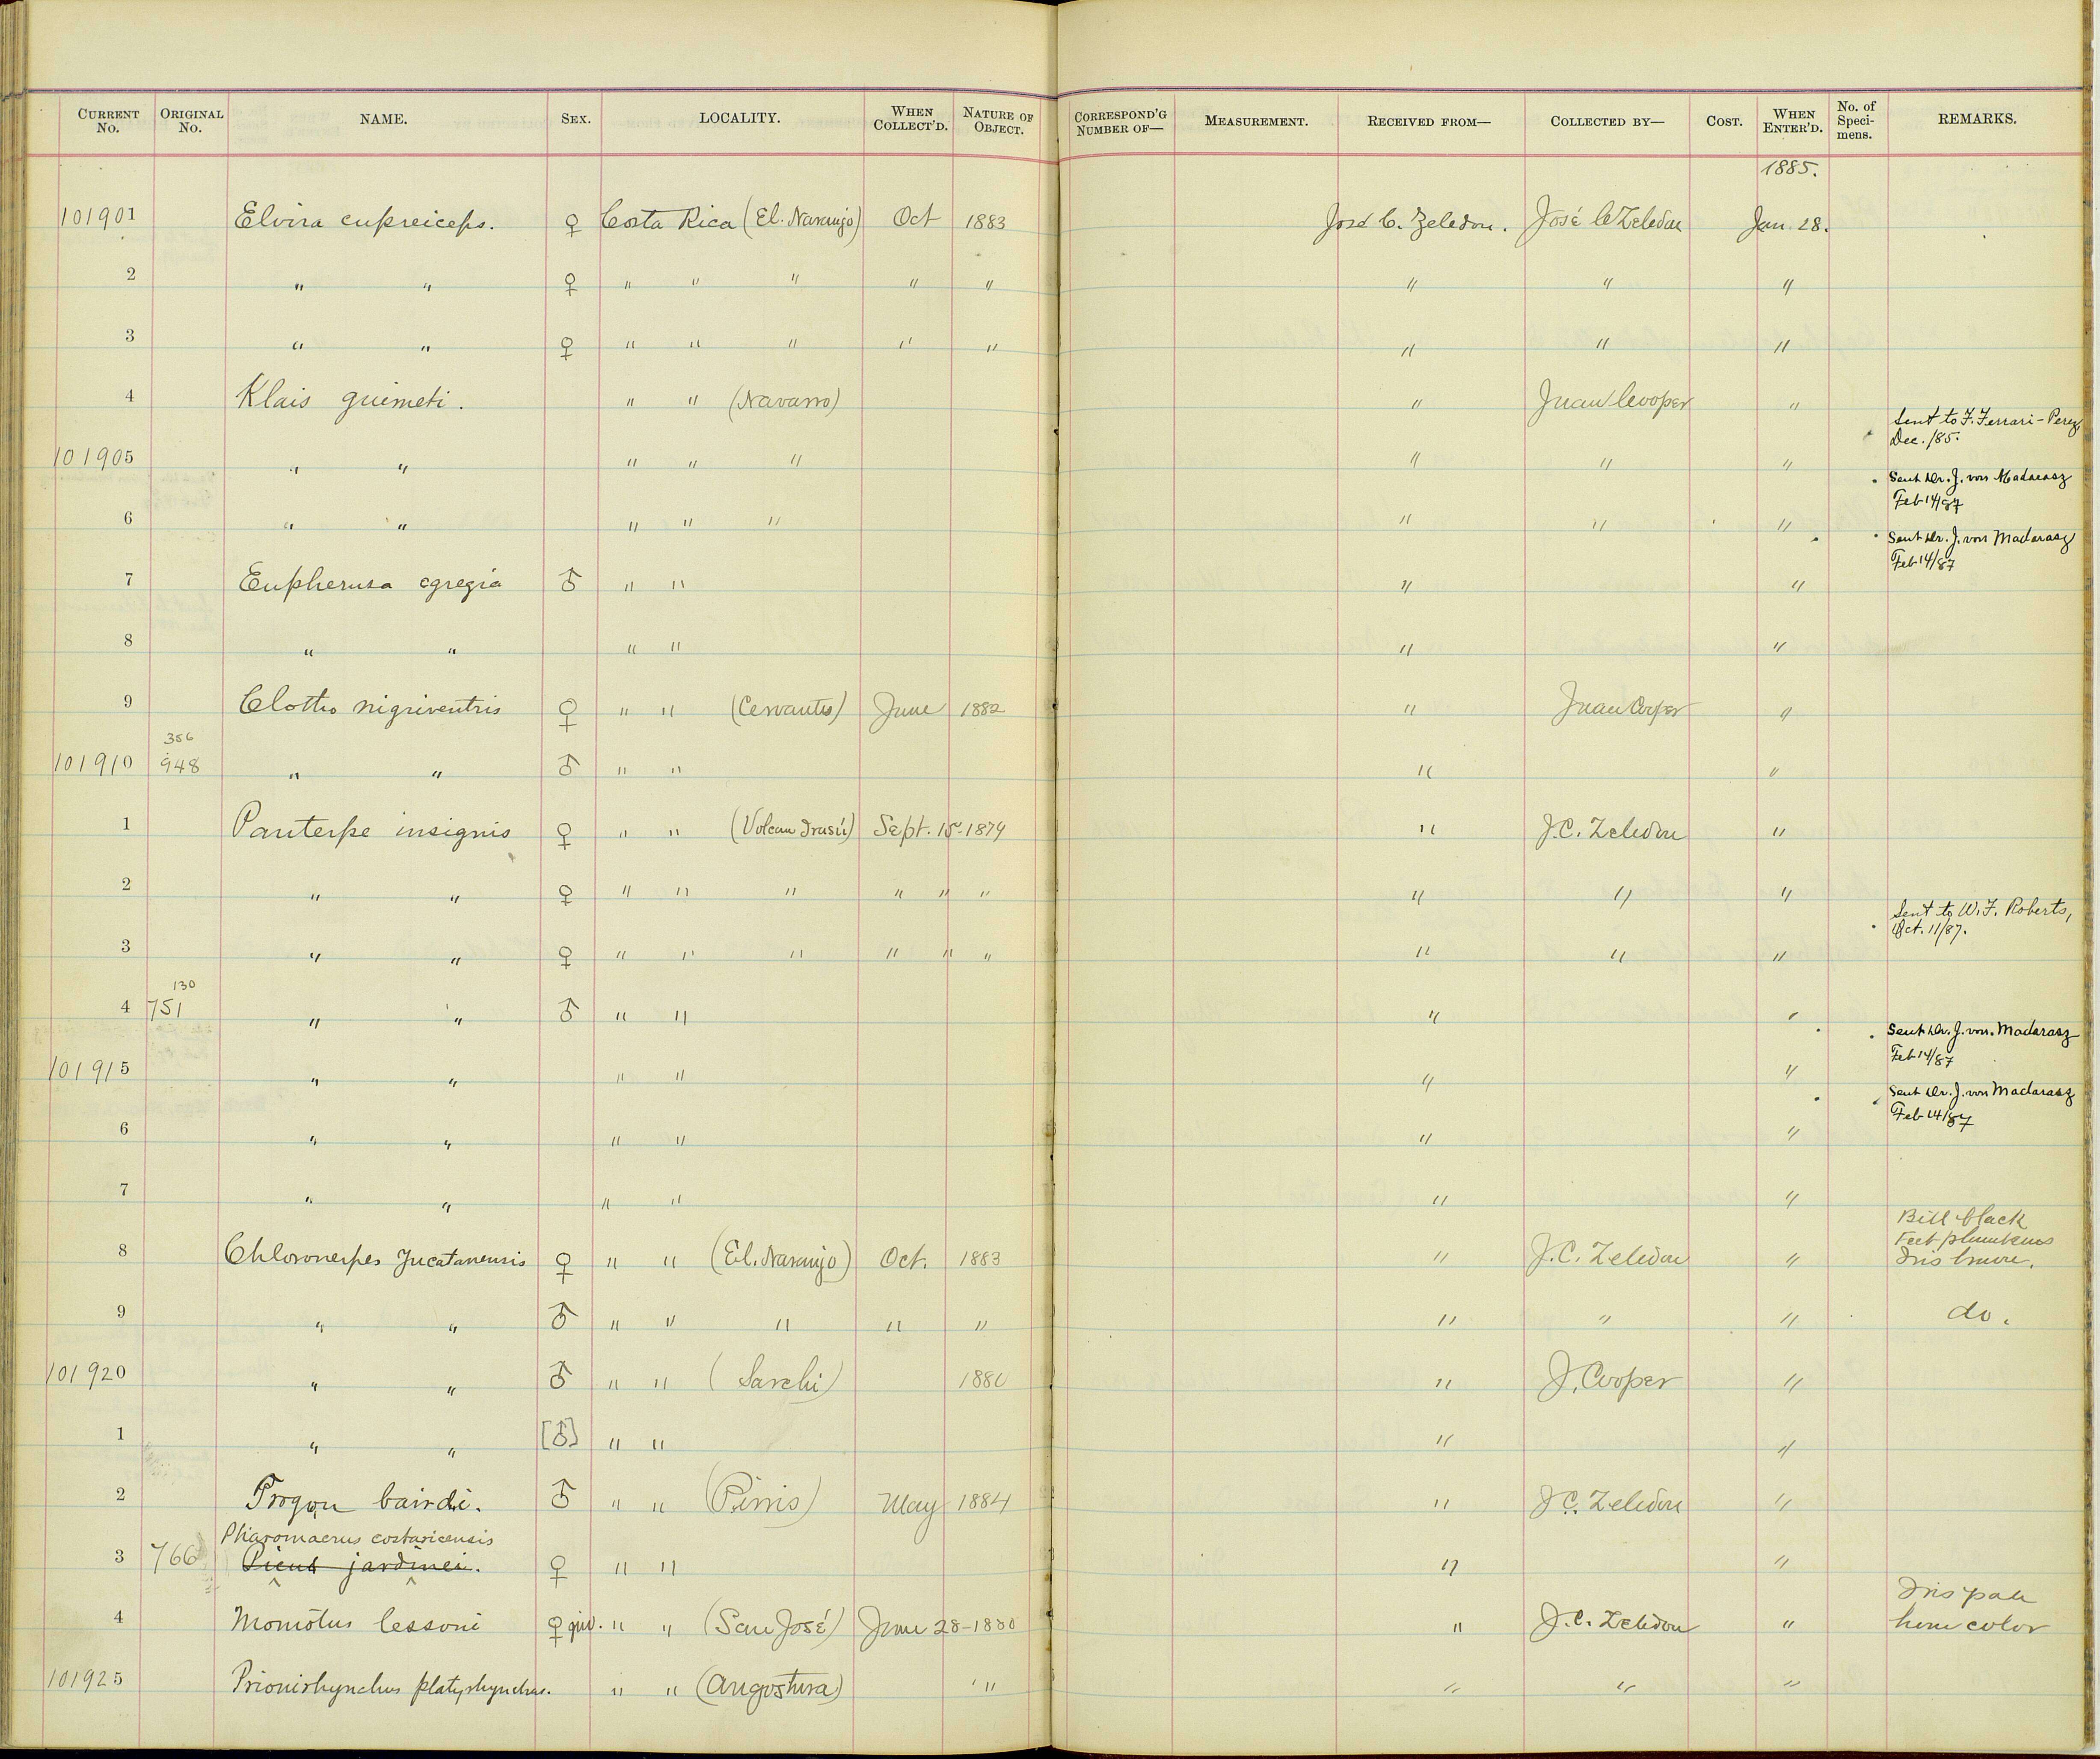 CURRENT No. ORIGINAL No. NAME. SEX. LOCALITY. WHEN COLLECT'D. NATURE OF OBJECT. CORRESPOND'G NUMBER OF— MEASUREMENT. RECEIVED FROM— COLLECTED BY— COST. WHEN ENTER'D. No. of Specimens. REMARKS.
1885.
101901 Elvira cupreiceps. ♀ Costa Rica (El. Naranjo) Oct 1883 José C. Zeledon. José C Zeledon Jan. 28.
2 " " ♀ " " " " " " " "
3 " " ♀ " " " " " " " "
4 Klais guimeti. " " (Navarro) " Juan Cooper "
Sent to F. Ferrari-Perez, Dec. /85.
101905 " " " " " " " "
Sent Dr. J. von Madarasz Feb 14/87
6 " " " " " " " "
Sent Dr. J. von Madarasz Feb 14/87
7 Eupherusa egregia ♂ " " " "
8 " " " " " "
9 Clotho nigriventris ♀ " " (Cervantes) June 1882 " Juan Cooper "
356
101910 948 " " ♂ " " " "
1 Panterpe insignis ♀ " " (Volcan Irasú) Sept. 15-1879 " J.C. Zeledon "
2 " " ♀ " " " " " " " " "
Sent to W. F. Roberts, Oct. 11/87.
3 " " ♀ " " " " " " " " "
130
4 751 " " ♂ " " " "
Sent Dr. J. von. Madarasz Feb 14/87
101915 " " " " " "
Sent Dr. J. von Madarasz Feb 14/87
6 " " " " " "
7 " " " " " "
Bill black
Feet
8 Chloronerpes Yucatanensis ♀ " " (El. Naranjo) Oct. 1883 " J.C. Zeledon " Iris
9 " " ♂ " " " " " " " " do.
101920 " " ♂ " " (Sarchi) " J. Cooper "
1 " " [♂] " " " "
2 Trogon bairdi. ♂ " " (Pirris) May 1884 " J.C. Zeledon "
Pharomacrus costaricensis
3 766 Picus jardinei. ♀ " " " "
Iris pale
4 Momotus lessoni ♀ juv. " " (San José) June 28-1880 " J.C. Zeledon " horn color
101925 Prionirhynchus platyrhynchus. " " (Angostura) " " " "